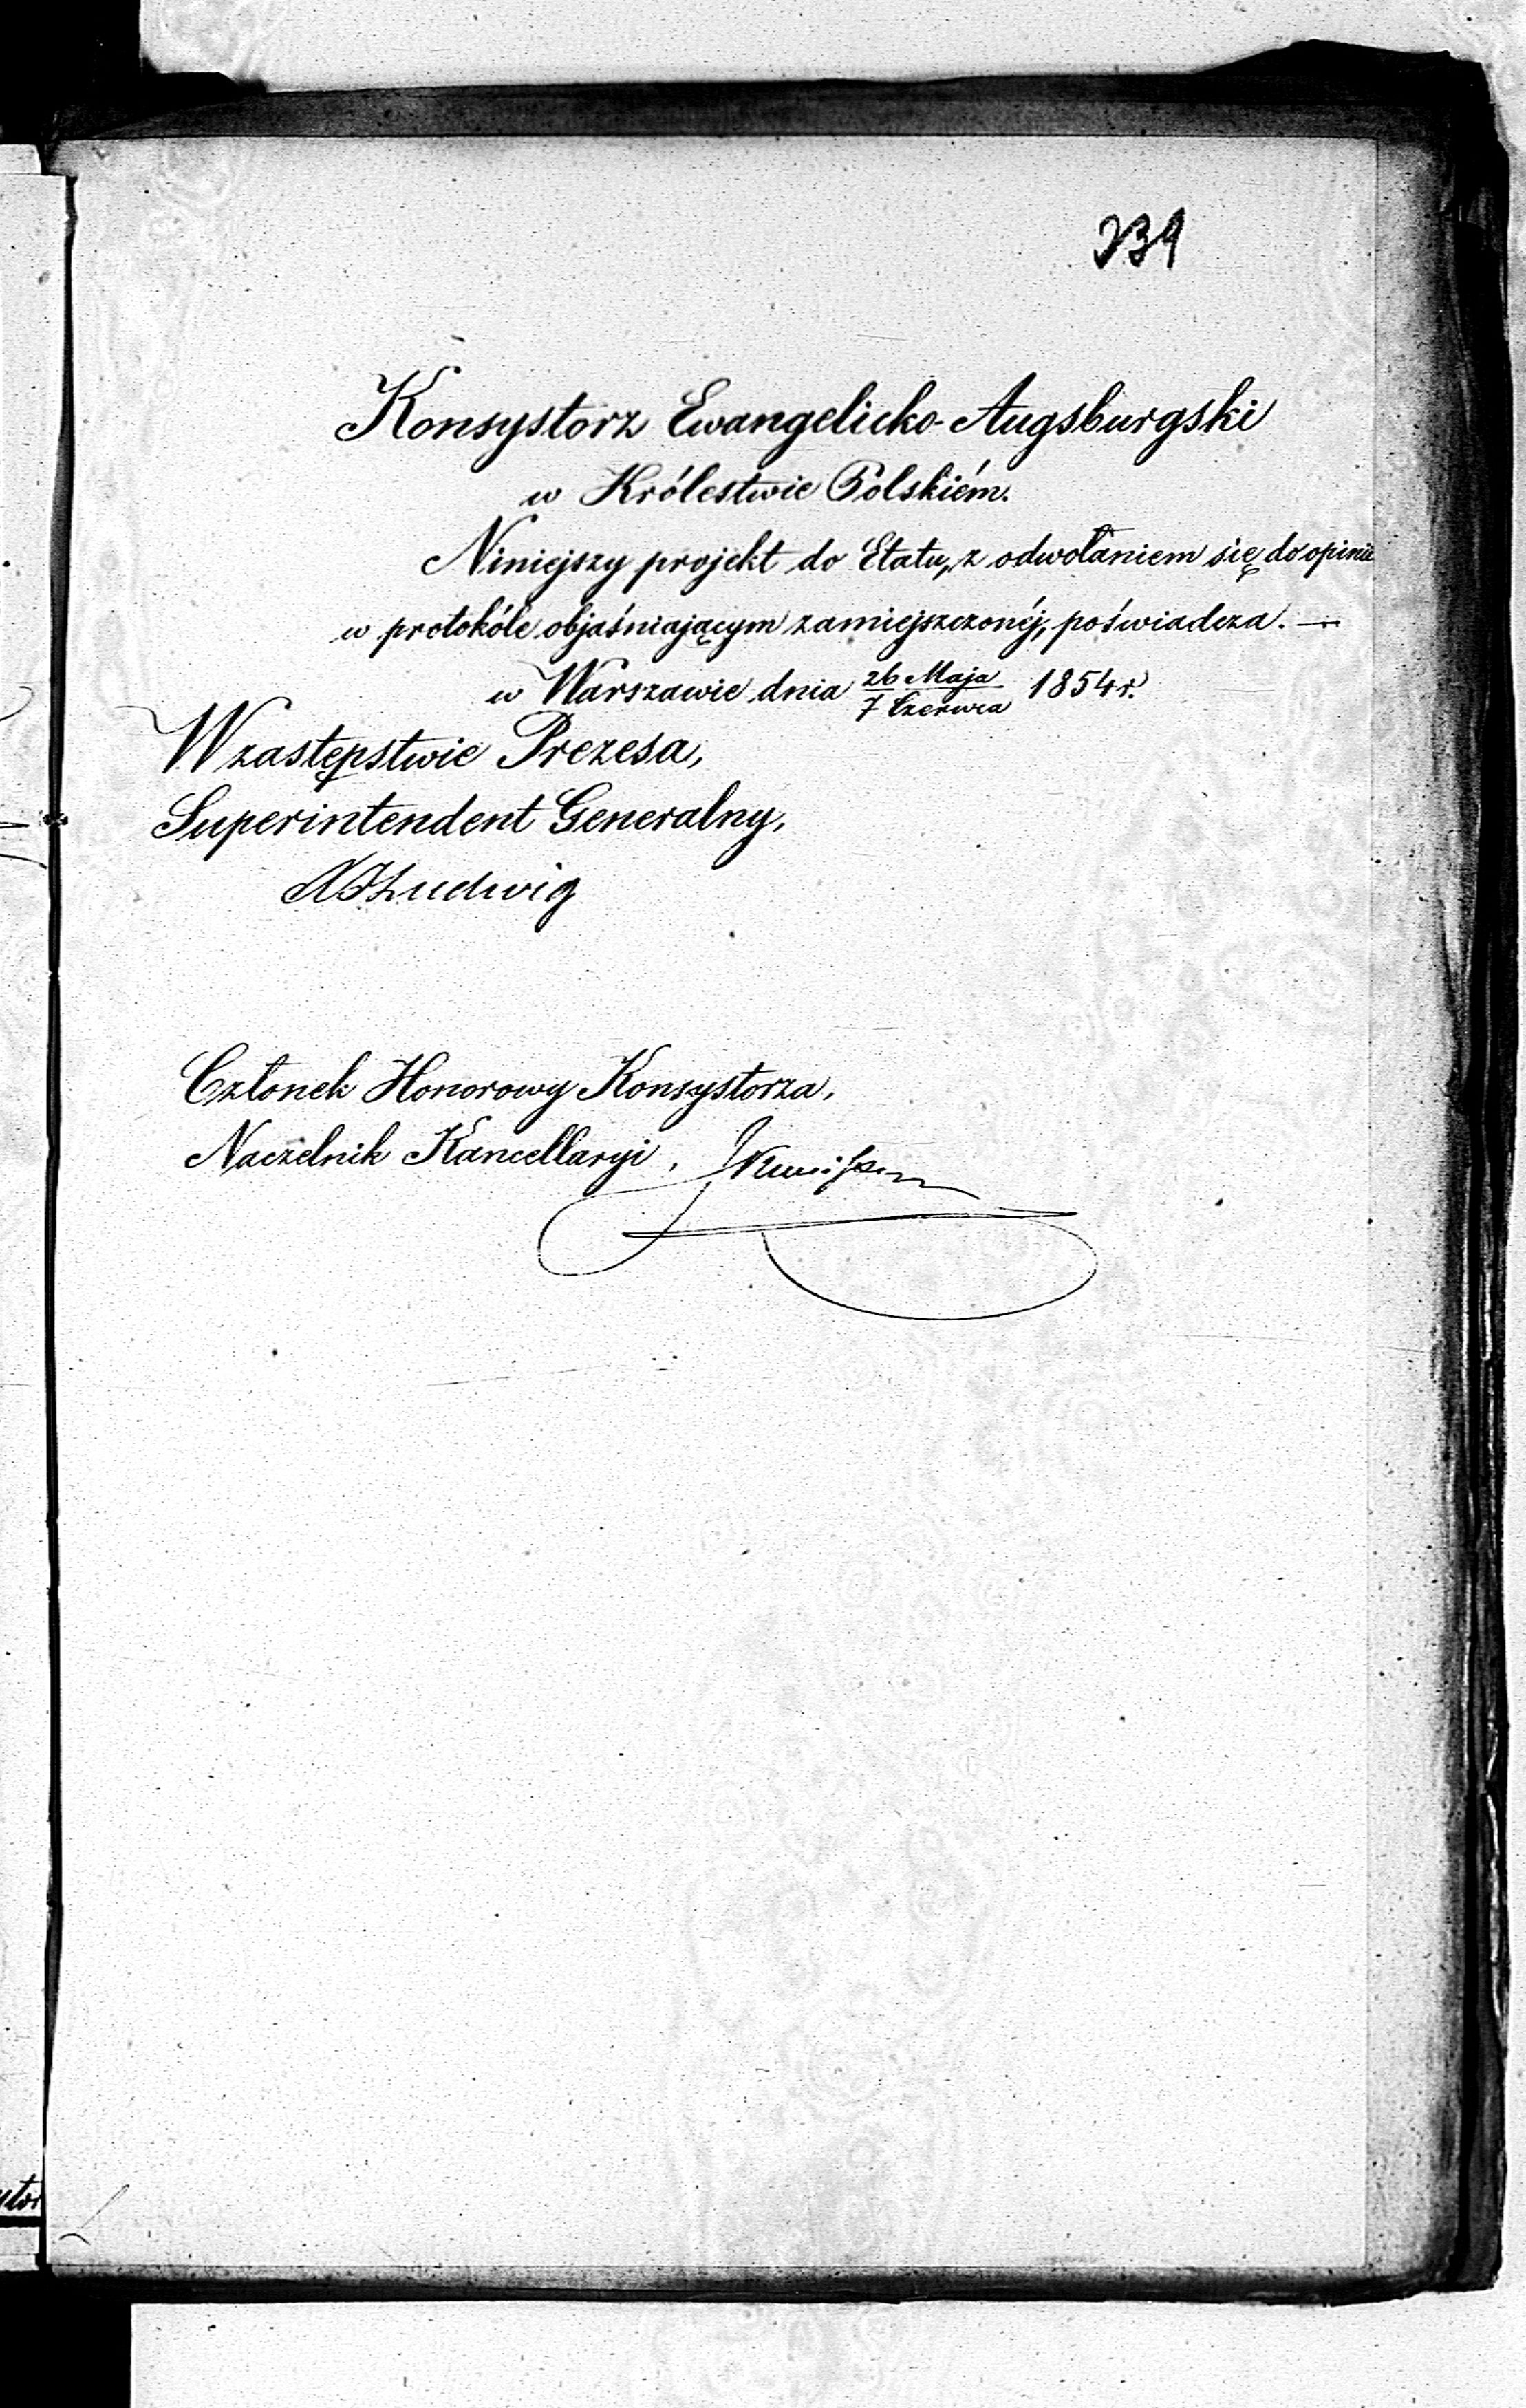 Konsystorz Ewangelicko-Augsburgski
w Królestwie Polskiém.
Niniejszy projekt do Etatu, z odwołaniem się do opinii
w protokóle objaśniającym zamiejszczonéj, poświadcza. —
w Warszawie dnia 26 Maja / 7 Czerwca 1854 r.
W zastępstwie Prezesa,
Superintendent Generalny,
Ludwig
Członek Honorowy Konsystorza,
Naczelnik Kancellaryi,